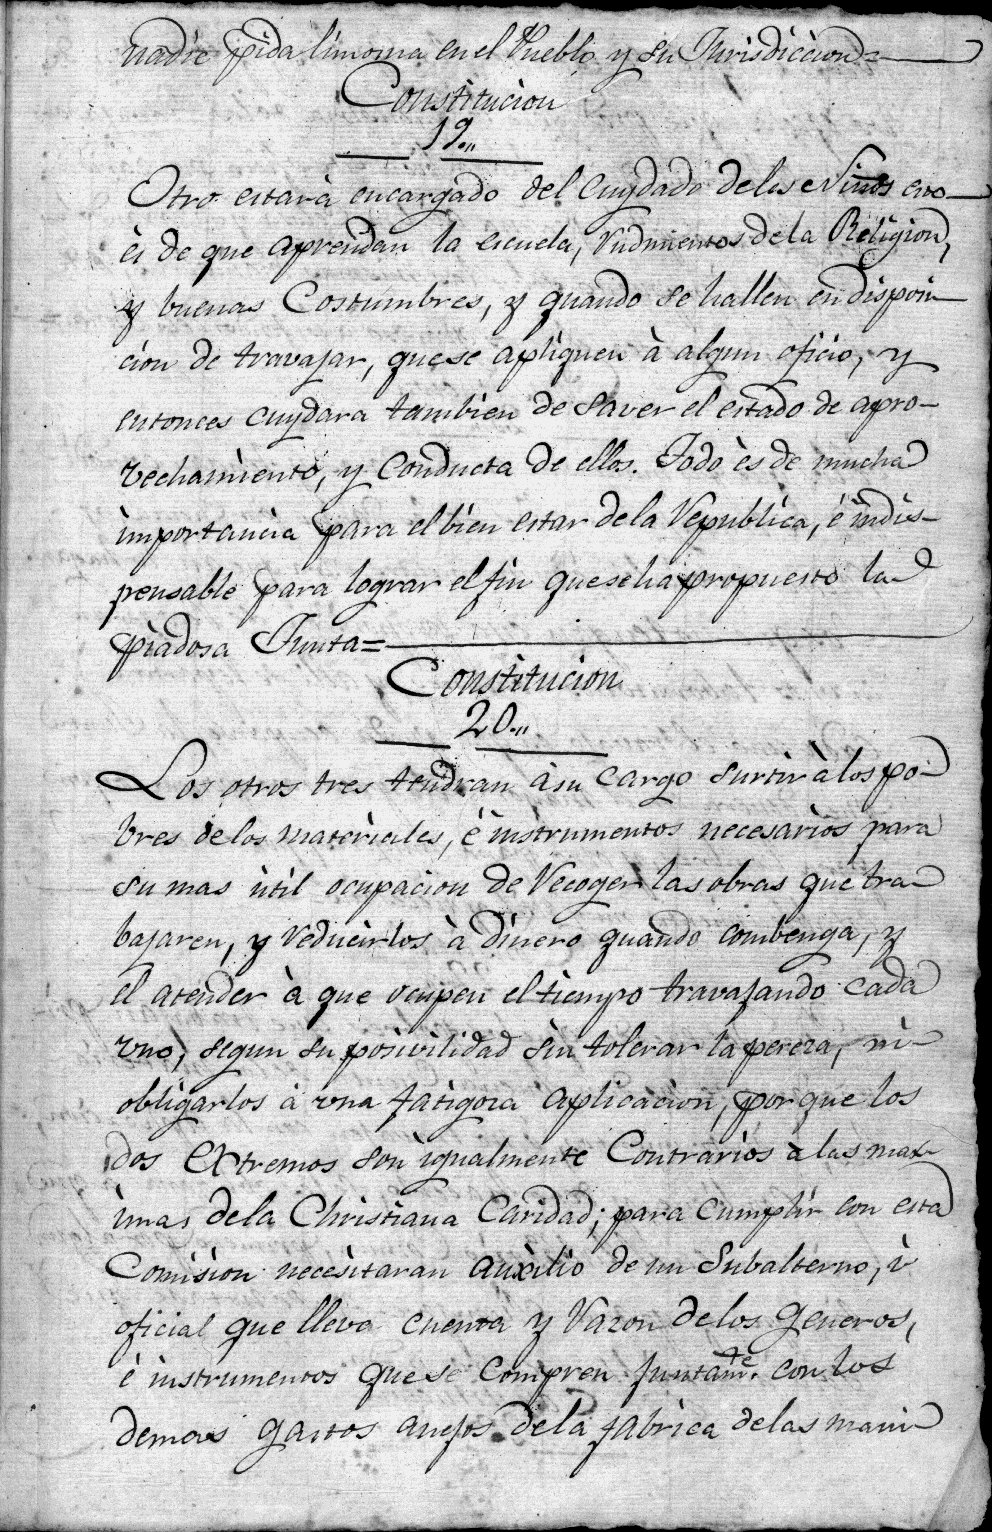 nadie pida limosna en el Pueblo y su Jurisdiccion=
Constitucion
19..
Otro estarà encargado del Cuydado delos Niños esto
ès de que aprendan la escuela, rudimentos dela Religion,
y buenas Costumbres, y quando se hallen en disposi-
cion de travajar, quese apliquen à algun oficio, y
entonces cuydara tambien de saver el estado de apro-
vechamiento, y Conducta de ellos. Todo ès de mucha
importancia para el bien estar dela Republica, é indis-
pensable para lograr el fin queseha propuesto la
piadosa Junta=
Constitucion
20..
Los otros tres tendran àsu cargo surtir à los po-
bres delos materiales, é instrumentos necesarios para
su mas ùtil ocupacion de recoger las obras que tra-
bajaren, y reducirlos à dinero quando combenga, y
el atender à que ocupen el tiempo travajando cada
vno, segun su posivilidad sin tolerar la pereza, ni
obligarlos à vna fatigosa aplicacion, porque los
dos extremos son igualmente Contrarios àlas max-
imas dela Christiana Caridad; para cumplir con esta
Comision necesitaran auxilio de un Subalterno, ù
oficial que lleve cuenta y razon delos generos,
è instrumentos quese compren juntamte. con los
demas gastos anejos dela fabrica delas mani-